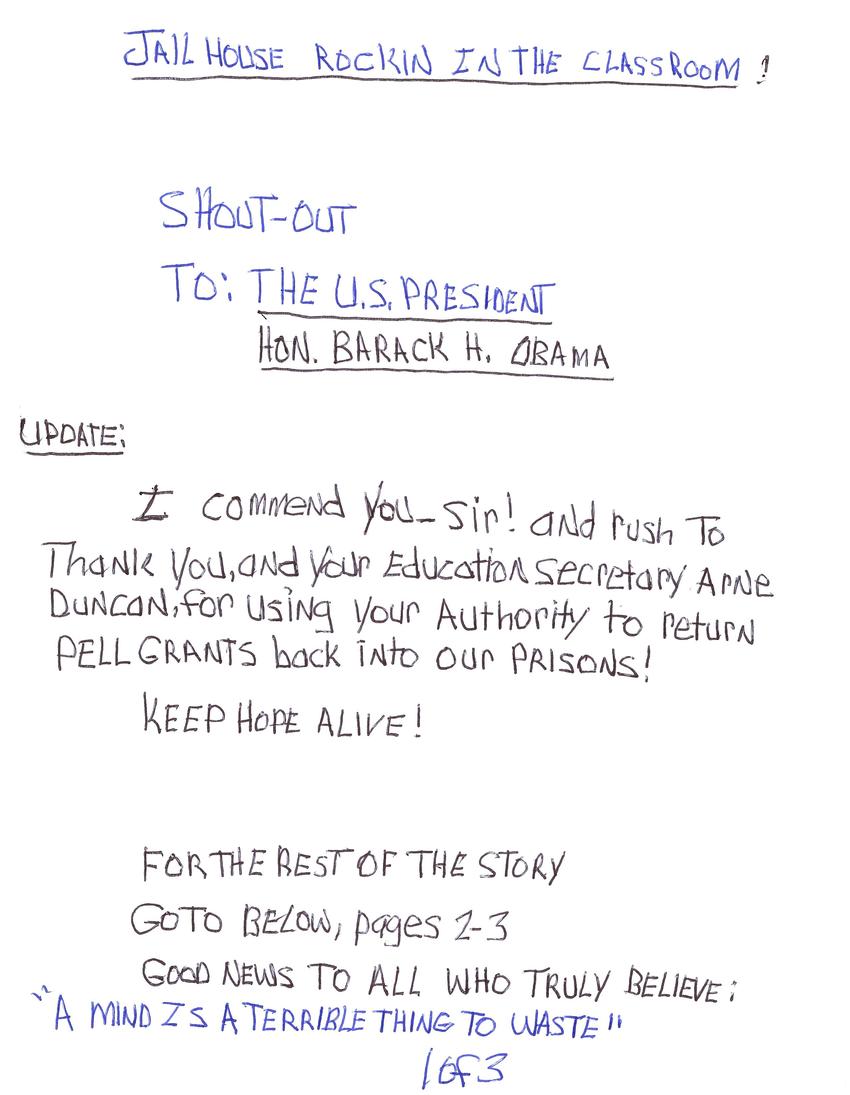 JAIL HOUSE ROCKIN IN THE CLASSROOM !
SHOUT-OUT
TO: THE U.S. PRESIDENT
HON. BARACK H. OBAMA
UPDATE:
I commend you- Sir! and rush To
Thank You, and your Education Secretary Arne
Duncan, for using your Authority to return
PELL GRANTS back into our PRISONS!
KEEP HOPE ALIVE!
FOR THE REST OF THE STORY
GO TO BELOW, pages 2-3
GOOD NEWS TO ALL WHO TRULY BELIEVE:
"A MIND IS A TERRIBLE THING TO WASTE"
1 of 3